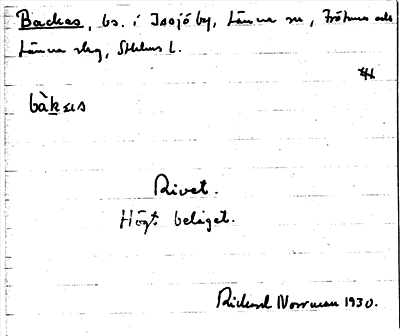 Backas, bs. i Issjö by, Länna sn, Frötuna och
Länna skg, Sthlms l.
bàkas
Rivet.
Högt beläget.
Rickard Norrman 1930.